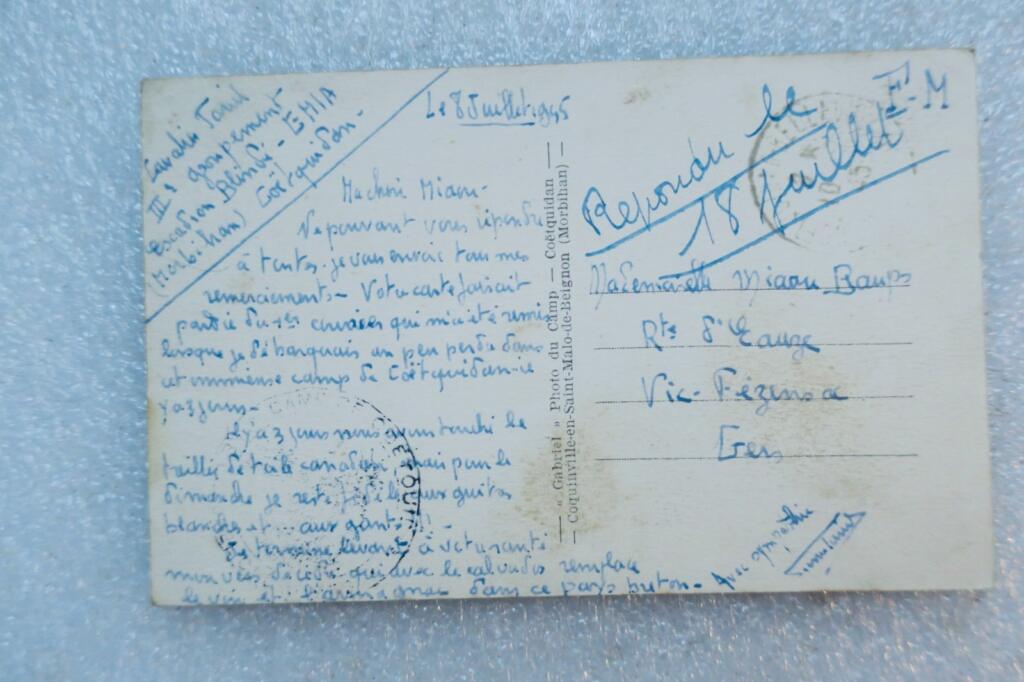 Cavalier
IIIe groupement
Escadron Blindé - EMIA
(Morbihan) Coëtquidan -
Le 8 Juillet 1945
Miaou -
Ne pouvant vous répondre
à toutes - je vous envoie tous mes
remerciements - Votre carte faisait
partie du 1er courrier qui m'a été remis
lorsque je débarquais un peu perdu dans
cet immense camp de Coëtquidan - il
y a 3 jours -
Il y a 3 jours nous avons touché le
de toile canadien, mais pour le
dimanche je reste fidèle aux
blanches et aux gants !!! -
Je termine levant à votre santé
mon verre de cidre qui avec le calvados remplace
le vin et l'armagnac dans ce pays breton -
Avec sympathie
— « Gabriel » Photo du Camp — Coëtquidan —
— Coquinville-en-Saint-Malo-de-Beignon (Morbihan) —
F-M
Repondu le
18 Juillet
Mademoiselle Miaou Baups
Rte d'Eauze
Vic-Fézensac
Gers